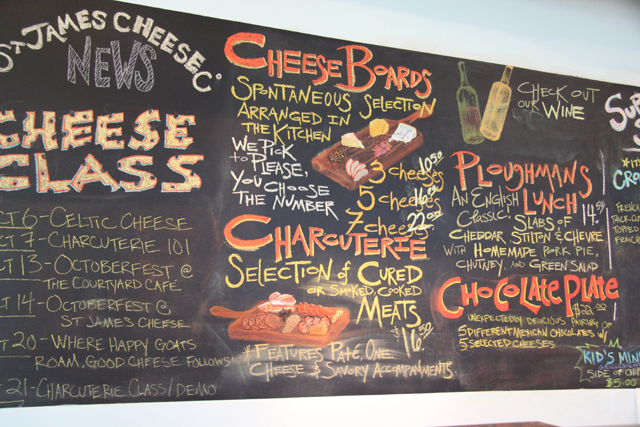 ST JAMES CHEESE Co
NEWS
CHEESE
CLASS
CT 6 - CELTIC CHEESE
CT 7 - CHARCUTERIE 101
CT 13 - OCTOBERFEST @
THE COURTYARD CAFÉ
CT 14 - OCTOBERFEST @
ST JAMES CHEESE
20 - WHERE HAPPY GOATS
ROAM, GOOD CHEESE FOLLOWS
21 - CHARCUTERIE CLASS/DEMO
CHEESE BOARDS
SPONTANEOUS SELECTION
ARRANGED IN
THE KITCHEN
WE PICK
to PLEASE,
YOU CHOOSE
THE NUMBER
3 cheeses 10.50
5 cheeses
7 cheeses 22.00
CHARCUTERIE
SELECTION of CURED
OR SMOKED, COOKED
MEATS
$16.50
* FEATURES PATÉ, ONE
CHEESE & SAVORY ACCOMPANIMENTS
CHECK OUT
OUR WINE
PLOUGHMANS
LUNCH 14.50
AN ENGLISH
CLASSIC!
SLABS OF
CHEDDAR STILTON & CHEVRE
WITH HOMEMADE PORK PIE,
CHUTNEY, AND GREEN SALAD
CHOCOLATE PLATE
UNEXPECTEDLY DELICIOUS PAIRING OF
5 DIFFERENT MEXICAN CHOCOLATES W/
5 SELECTED CHEESES
SU
*IT
CRO
FRENC
TOPPED
KID'S MIN
SIDE OF CHIP
$5.00